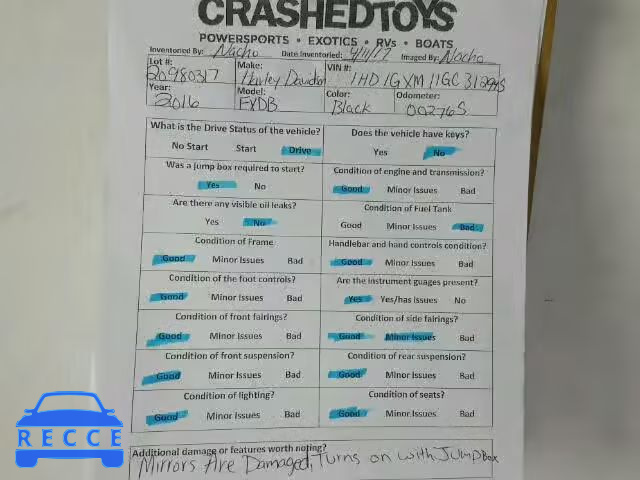 CRASHEDTOYS
POWERSPORTS • EXOTICS • RVs • BOATS
Inventoried By: Nacho Date Inventoried: 4/11/17 Imaged By: Nacho
Lot #: Make: VIN #:
20980317 Harley Davidson 1HD1GXM11GC312995
Year: Model: Color: Odometer:
2016 FXDB Black 002765
What is the Drive Status of the vehicle? Does the vehicle have keys?
No Start Start Drive Yes No
Was a jump box required to start? Condition of engine and transmission?
Yes No Good Minor Issues Bad
Are there any visible oil leaks? Condition of Fuel Tank
Yes No Good Minor Issues Bad
Condition of Frame Handlebar and hand controls condition?
Good Minor Issues Bad Good Minor Issues Bad
Condition of the foot controls? Are the instrument guages present?
Good Minor Issues Bad Yes Yes/has Issues No
Condition of front fairings? Condition of side fairings?
Good Minor Issues Bad Good Minor Issues Bad
Condition of front suspension? Condition of rear suspension?
Good Minor Issues Bad Good Minor Issues Bad
Condition of lighting? Condition of seats?
Good Minor Issues Bad Good Minor Issues Bad
Additional damage or features worth noting?
Mirrors Are Damaged, Turns on with Jump Box
RECCE